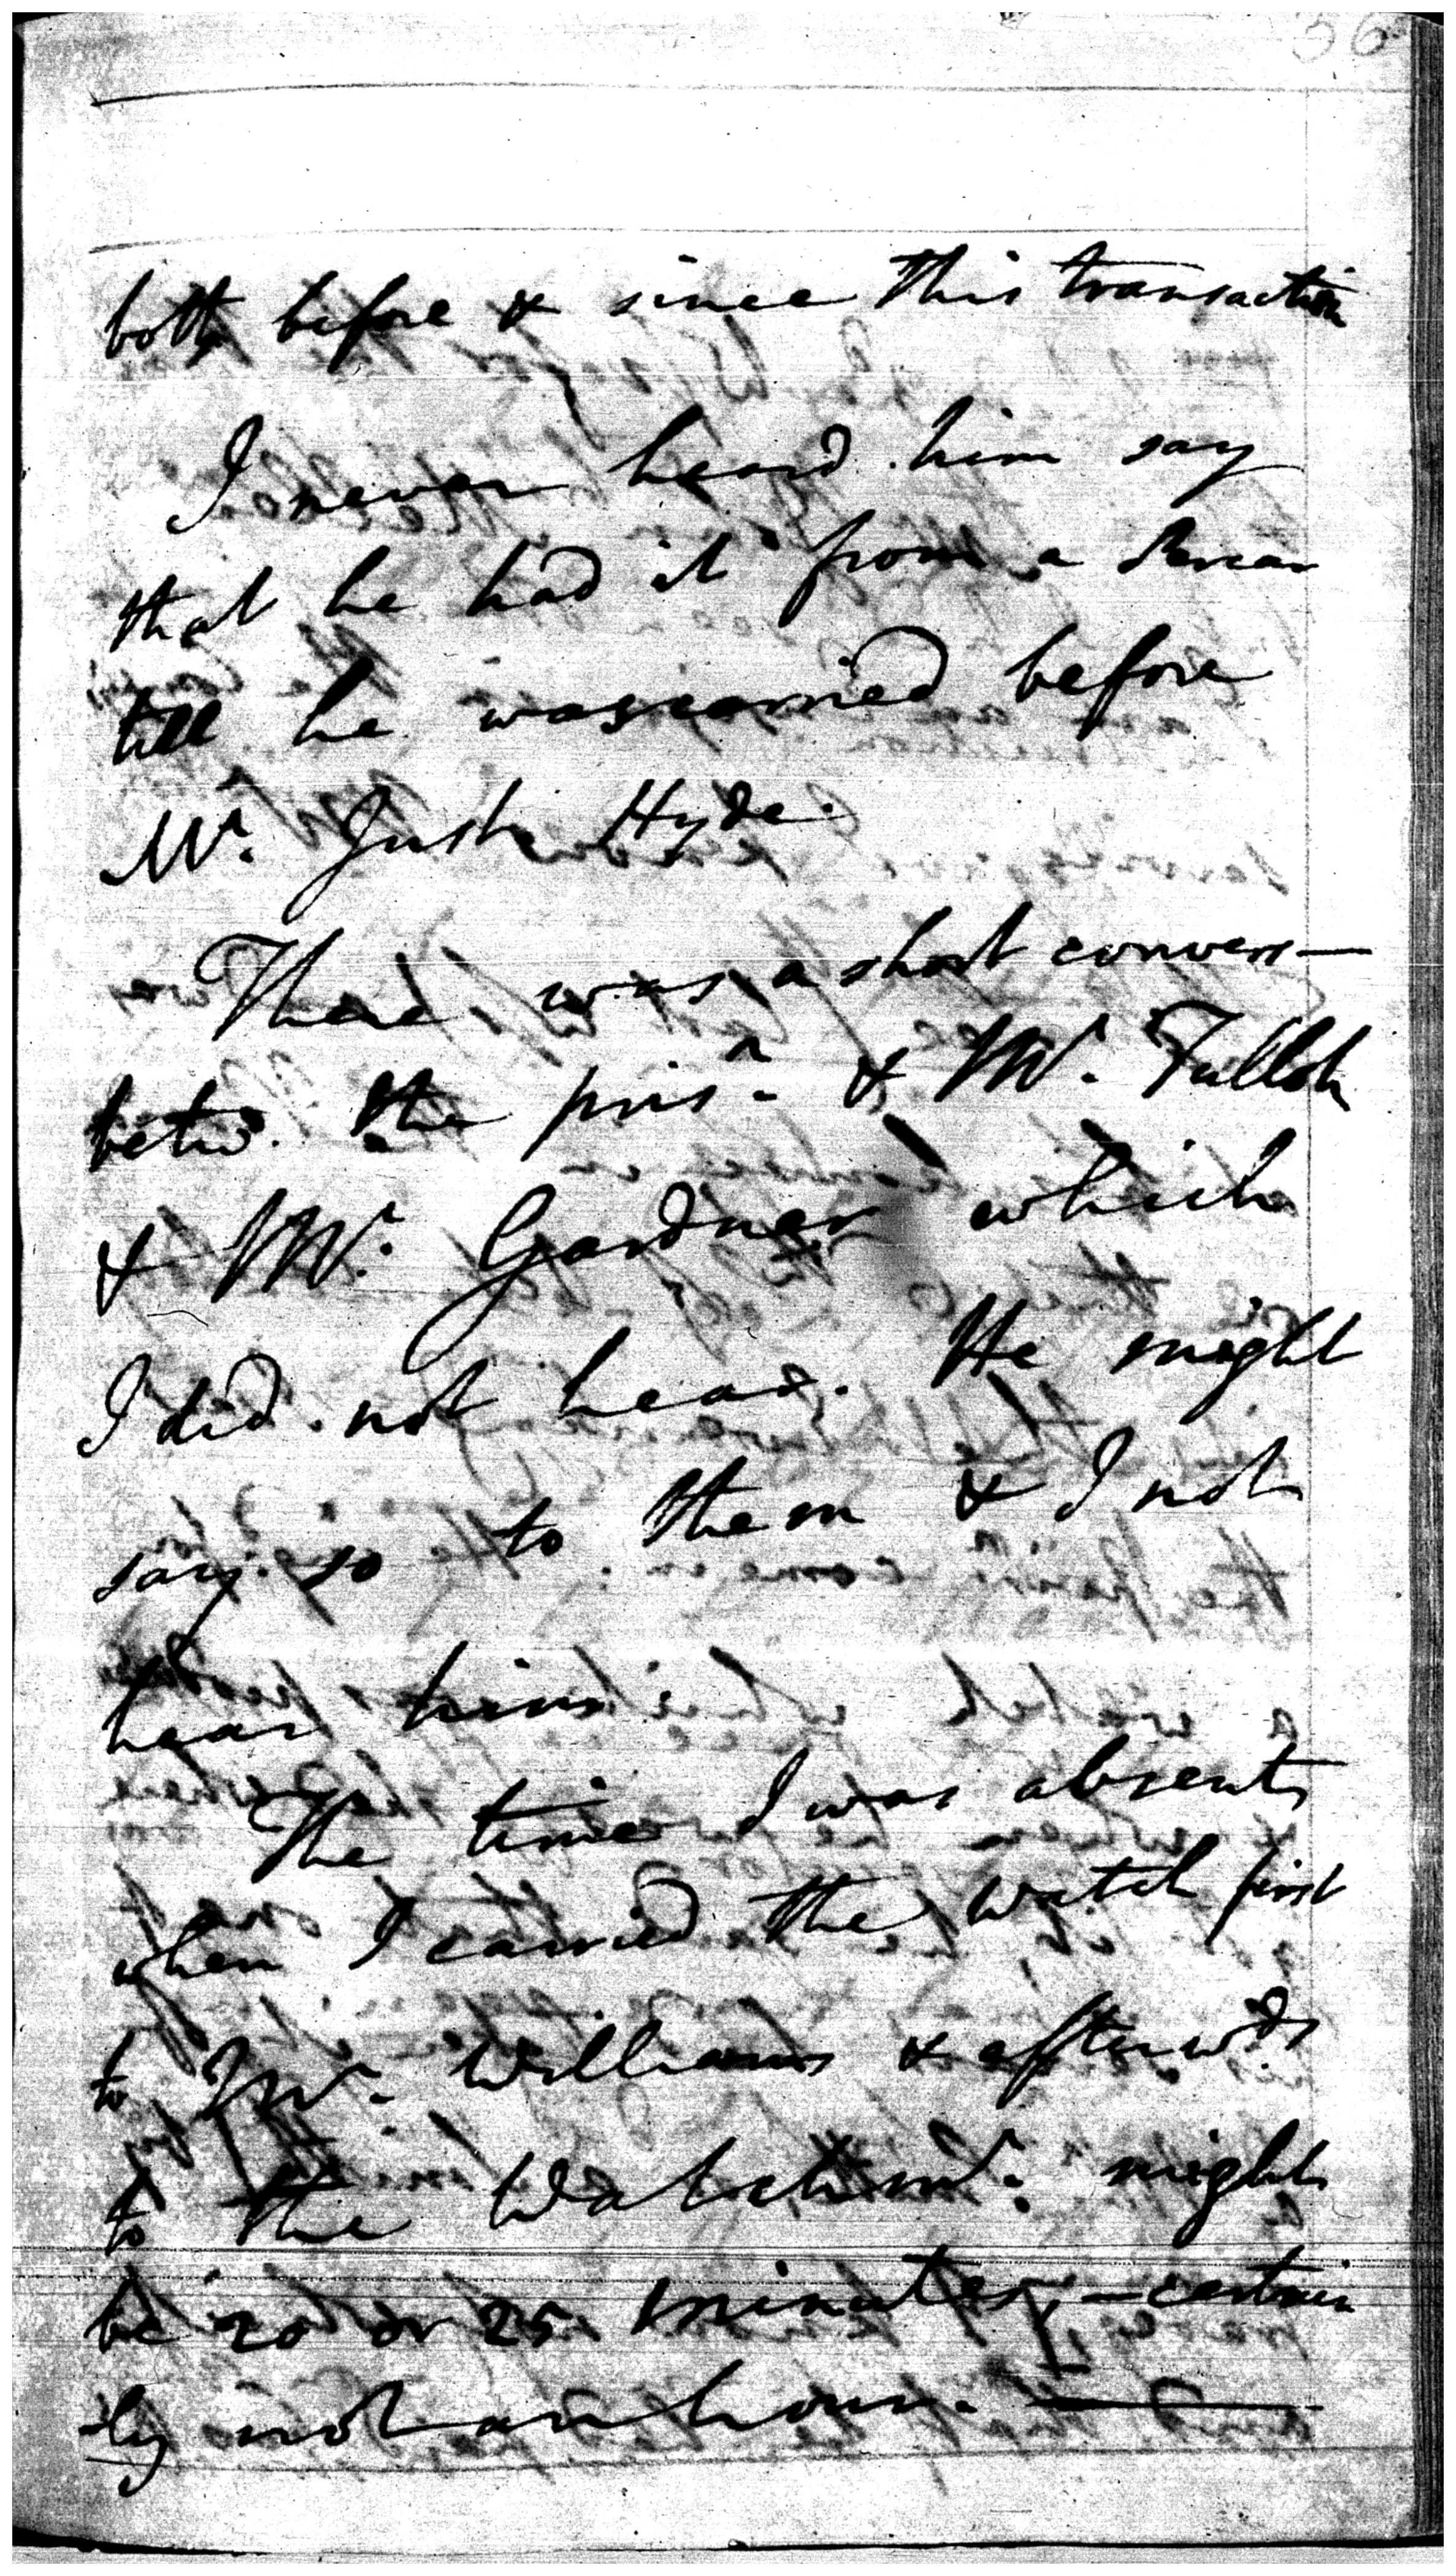 56
both before & since this transaction
I never heard him say
that he had it from a Sircar
till he was carried before
Mr. Just. Hyde.
There was a short convers—
betw. the prisr. & Mr. Tulloh
& Mr. Gardner which
I did not hear. He might
say so to them & I not
hear him.
The time I was absent
when I carried the watch first
to Mr. Williams & afterwds
to the Watchmr. might
be 20 or 25 minutes, — certain
ly not an hour. —